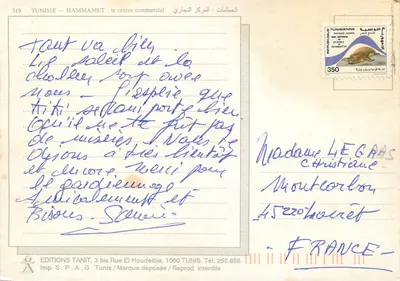 319 TUNISIE — HAMMAMET : le centre commercial الحمامات : المركز التجاري
Tout va bien
Le soleil et la
chaleur sont avec
nous - J'espère que
Titi se porte bien
Qu'il ne te fait pas
de misères. Nous te
disons à très bientôt
et encore merci pour
le gardiennage
Amicalement et
Bisous -
350
Madame LEGARS
Christiane
Montcorbon
45220 Loiret
- FRANCE -
EDITIONS TANIT, 3 bis Rue El Houdeibia, 1000 TUNIS. Tél. 256.858.
Imp. S . P . A . G Tunis / Marque déposée / Reprod. interdite